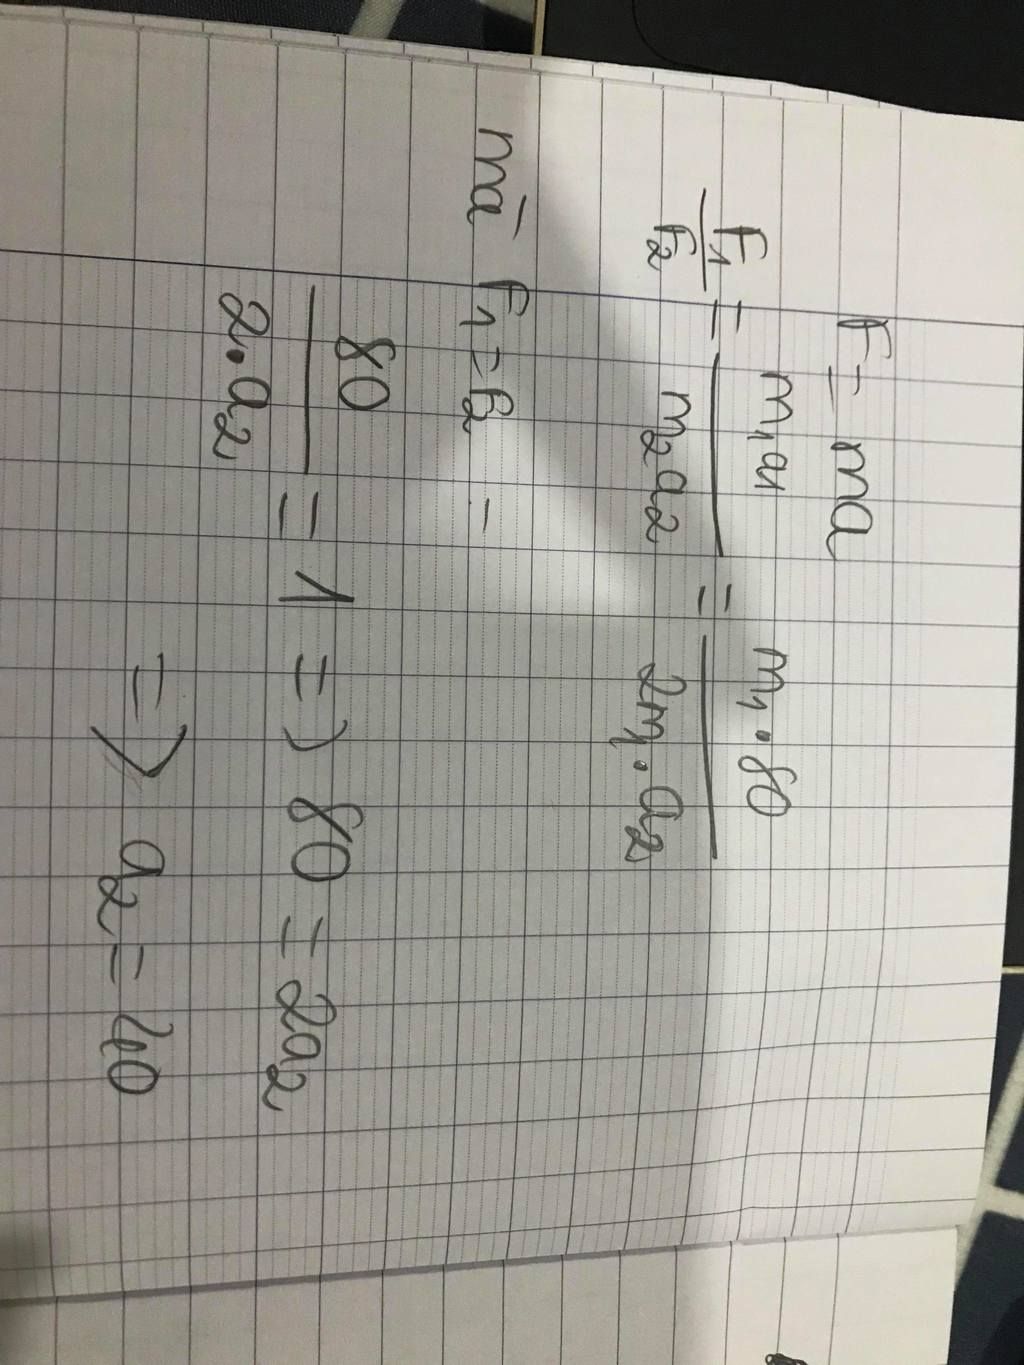 F = ma
F1/F2 = m1a1/m2a2 = m1.80/2m1.a2
mà F1 = F2 =
80/2.a2 = 1 => 80 = 2a2
=> a2 = 40